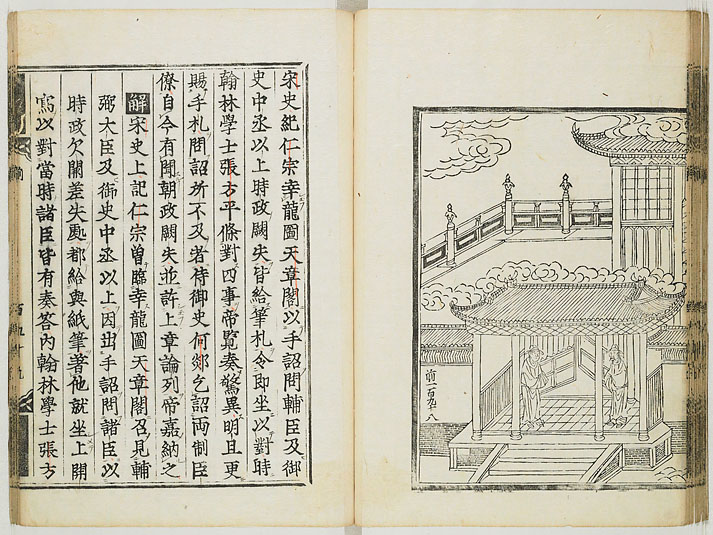 前一百九十八
宋史紀仁宗幸龍圖天章閣以手詔問輔臣及御
史中丞以上時政闕失皆給筆札令即坐以對時
翰林學士張方平條對四事帝覽奏驚異明且更
賜手札問詔所不及者侍御史何郯乞詔兩制臣
僚自今有聞朝政闕失並許上章論列帝嘉納之
解宋史上記仁宗曾臨幸龍圖天章閣召見輔
弼大臣及御史中丞以上因出手詔問諸臣以
時政欠闕差失處都給與紙筆著他就坐上開
寫以對當時諸臣皆有奏答內翰林學士張方